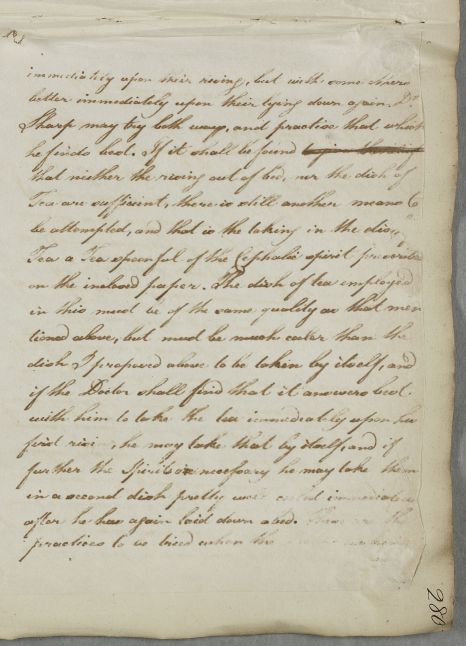 immediately upon their rising, but with some others
better immediately upon their lying down again. Dr
Sharp may try both ways, and practise that which
he finds best. If it shall be found
that neither the rising out of bed, nor the dish of
Tea are sufficient, there is still another means to
be attempted, and that is the taking in the dish
Tea a Tea spoonful of the Cephalic spirit prescribed
on the inclosed paper. The dish of tea employed
in this must be of the same quality as that men
tioned above, but must be much cooler than the
dish I proposed above to be taken by itself, and
if the Doctor shall find that it answers best
with him to take the tea immediately upon his
first rising, he may take that by itself, and if
further the Spirit is necessary he may take them
in a second dish pretty well cooled immediately
after he has again laid down abed. These are the
practices to be tried when the
280